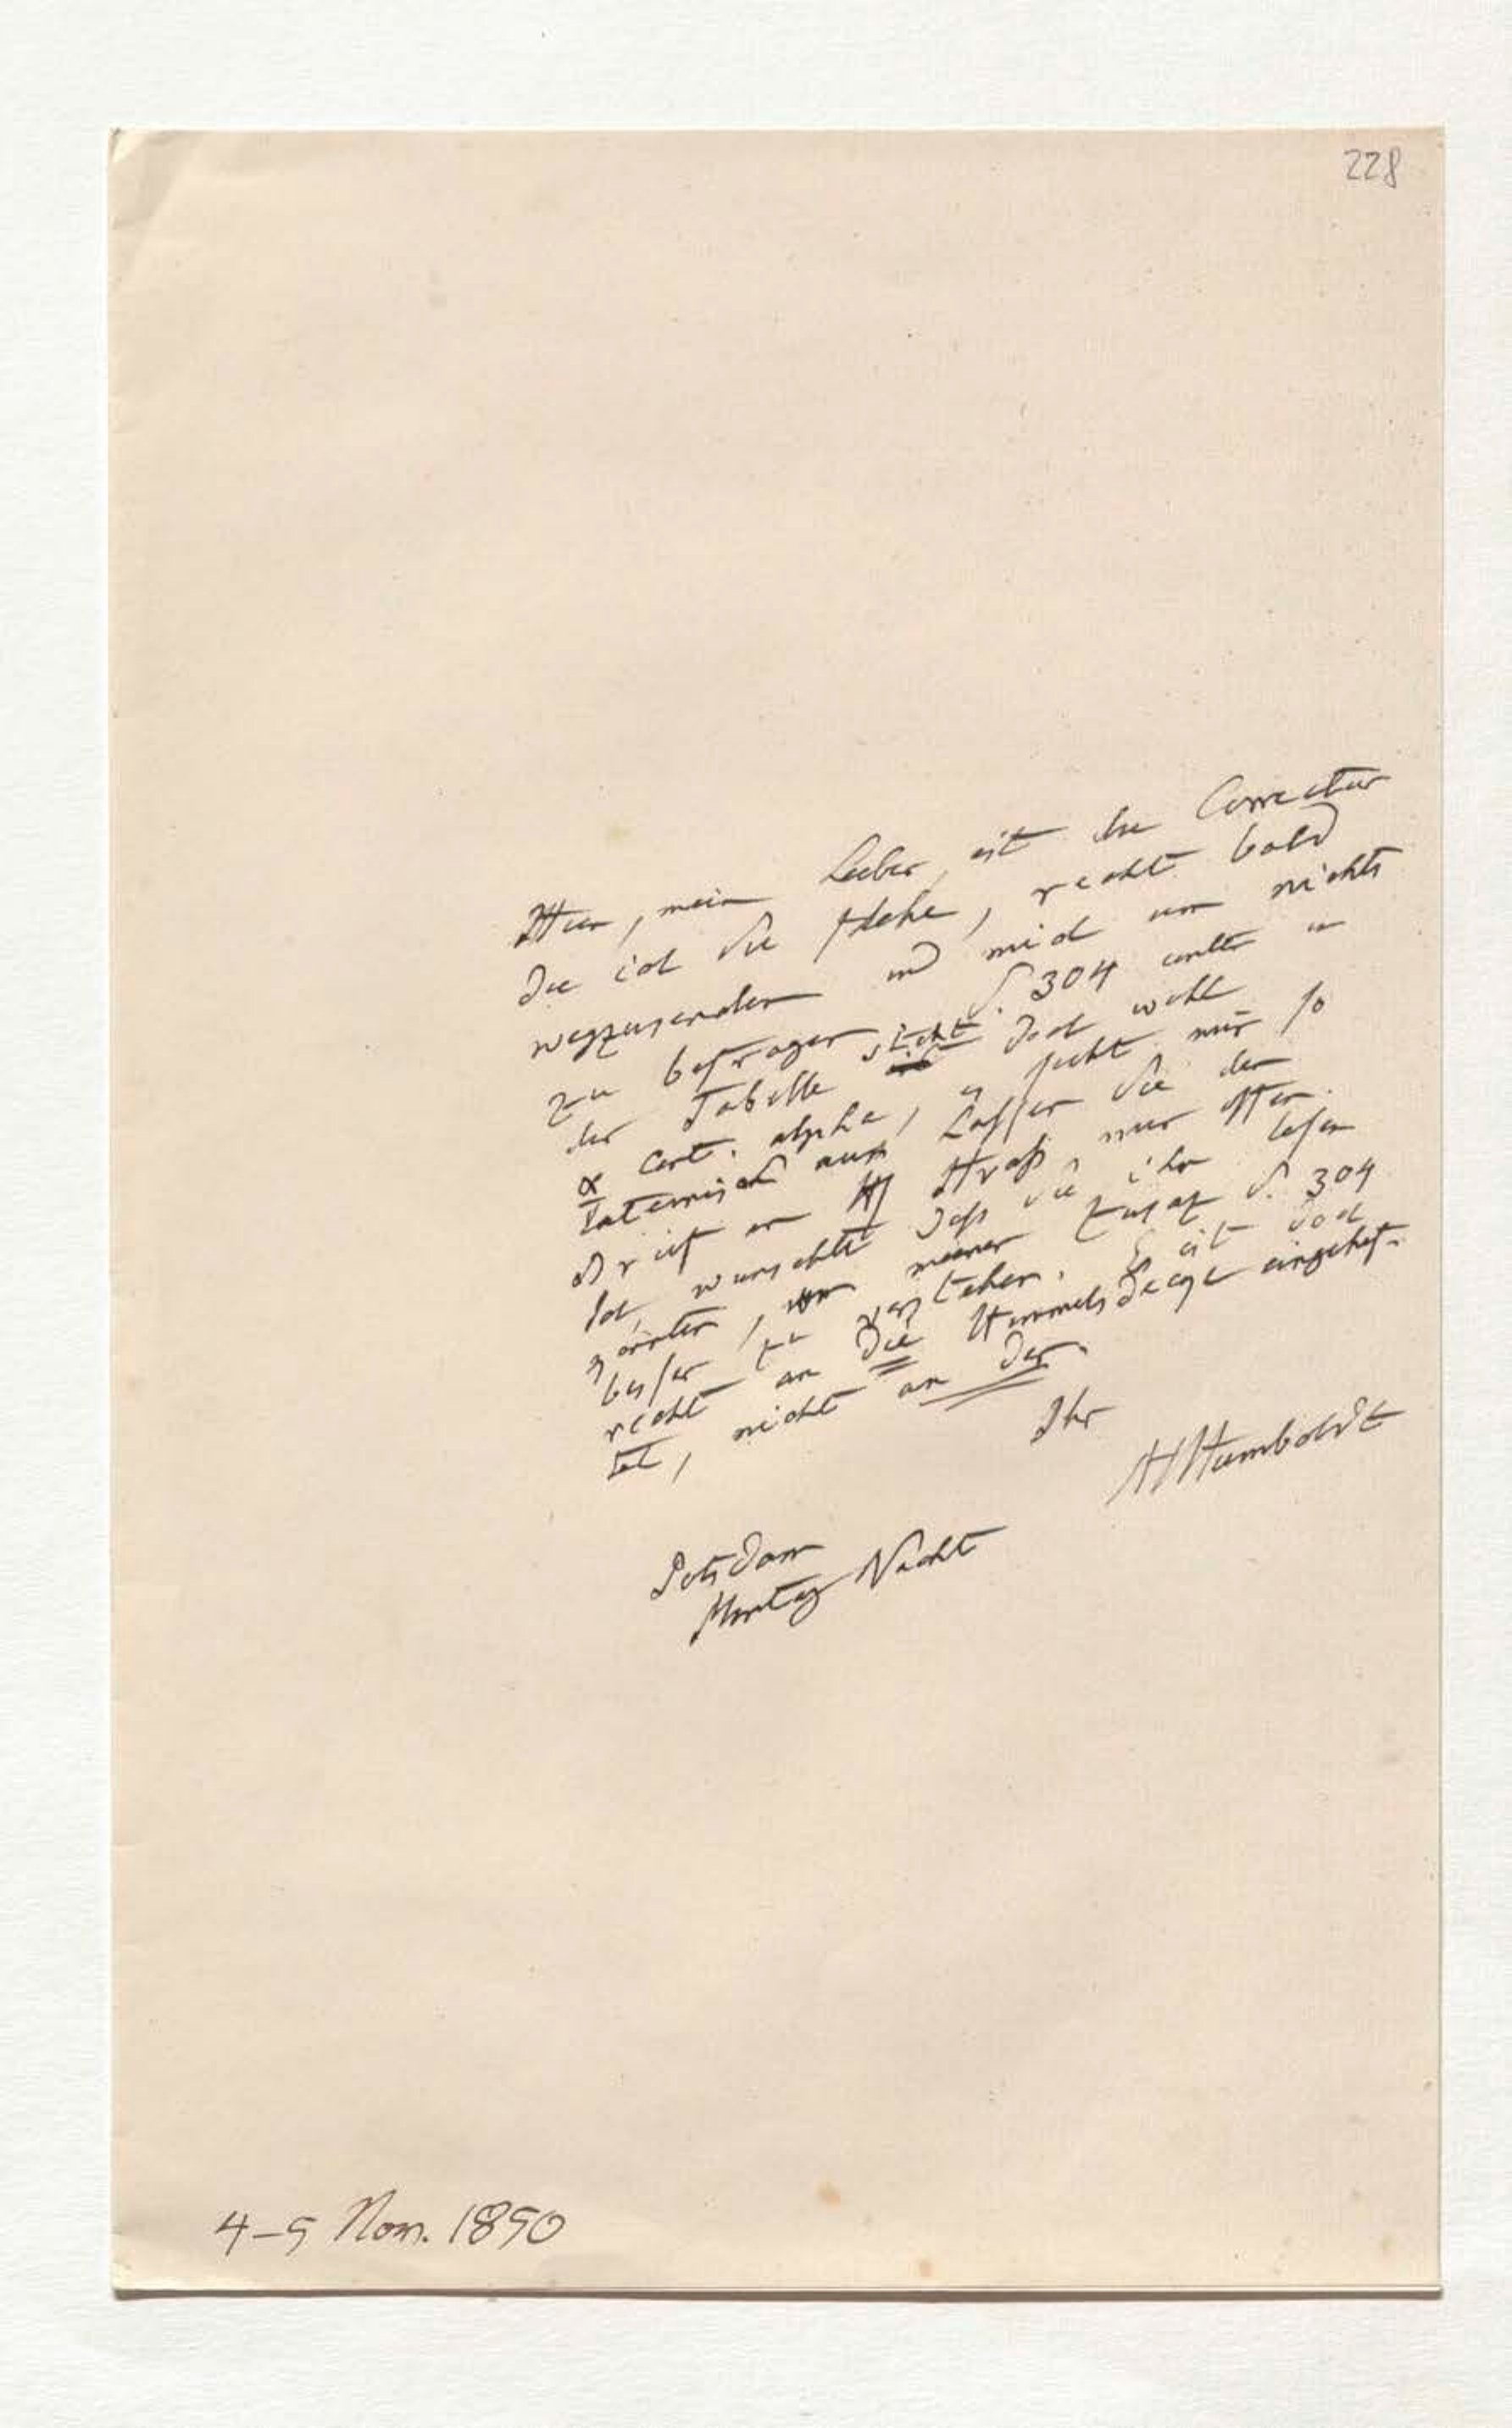 228
Hier, mein Lieber, ist die Correctur
die ich Sie flehe, recht bald
wegzusenden und mich um nichts
zu befragen. S. 304 unten in
der Tabelle steht doch wohl
α Cent. alpha, es sieht nur so
lateinisch aus. Lassen Sie den
Brief an H Prof. nur offen.
Ich wünschte daß Sie ihn lesen
könnten, um meinen Zusaz S. 304
besser zu verstehen. Es ist doch
recht an die Himmelsdecke eingehef-
tet, nicht an der.
Ihr
AvHumboldt
Potsdam
Montag Nacht
4–5 Nov. 1850